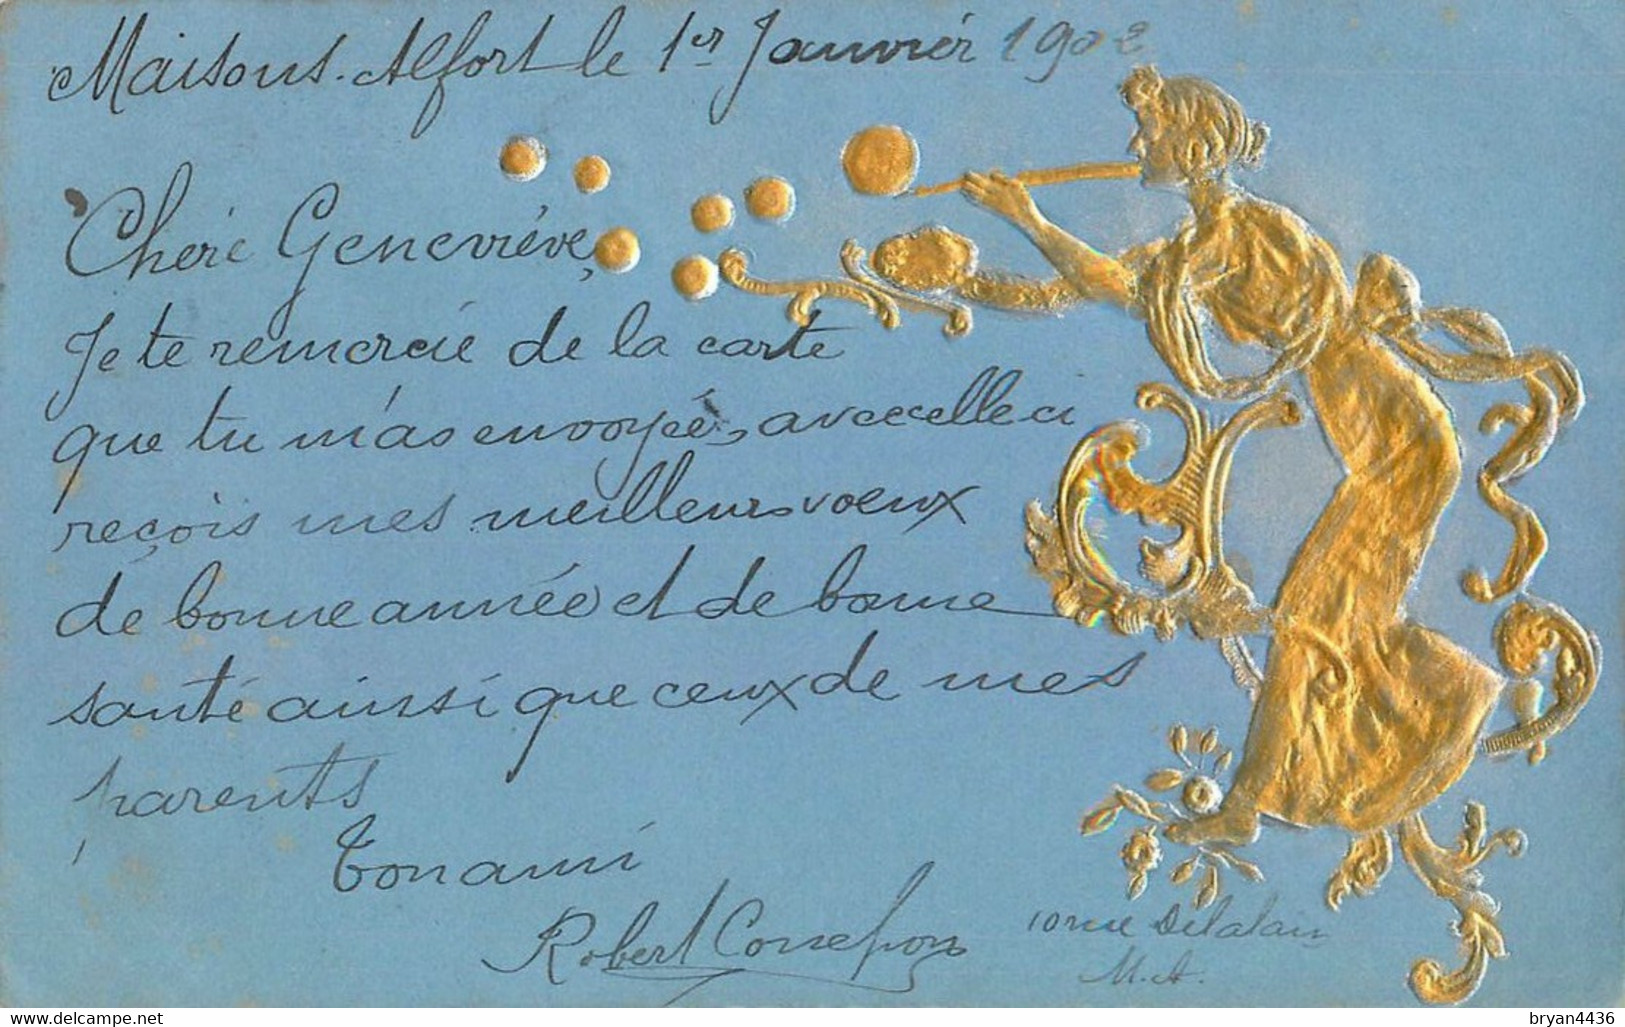 Maisons-Alfort le 1er Janvier 1902
Chère Geneviève,
Je te remercie de la carte
que tu m'as envoyée, avec celle ci
reçois mes meilleurs voeux
de bonne année et de bonne
santé ainsi que ceux de mes
parents
Ton ami
Robert
10 rue Delalain
M.A.
delcampe.net
bryan4436